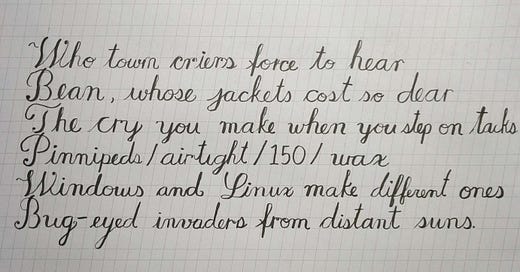 Who town criers force to hear
Bean, whose jackets cost so dear
The cry you make when you step on tacks
Pinnipeds/airtight/150/wax
Windows and Linux make different ones
Bug-eyed invaders from distant suns.